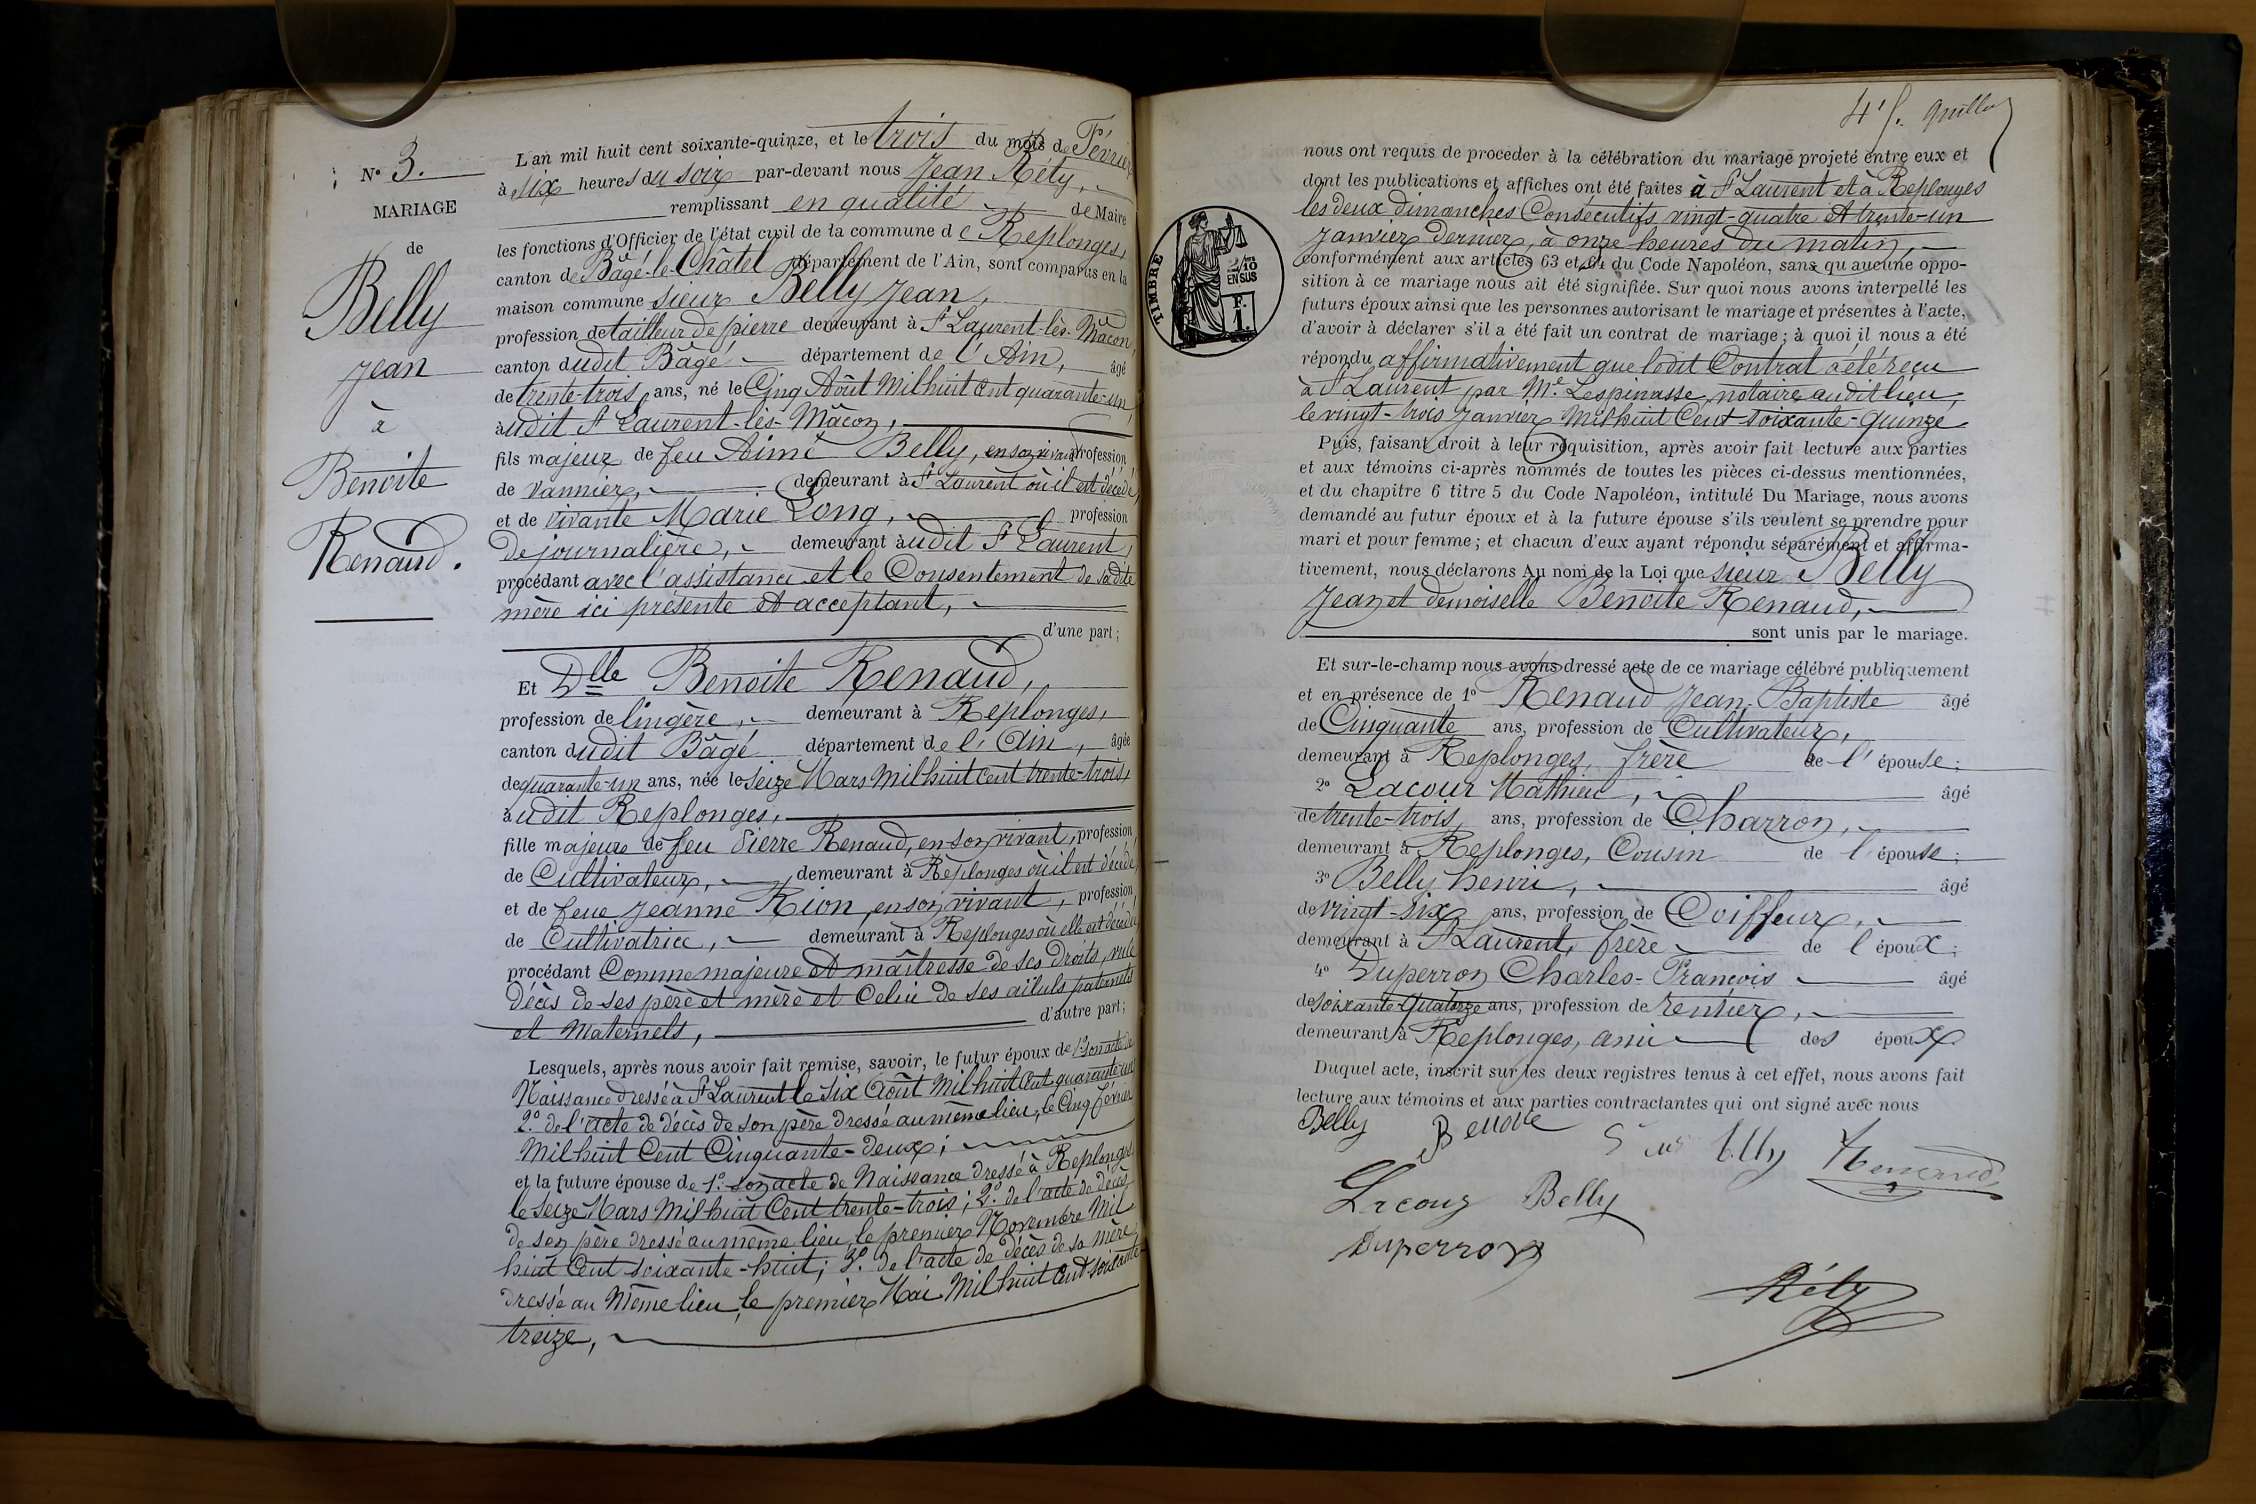 N° 3.
MARIAGE
de
Belly
Jean
à
Benoite
Renaud.
L'an mil huit cent soixante-quinze, et le trois du mois de Février
à six heures du soir par-devant nous Jean Réty,
remplissant en qualité de Maire
les fonctions d'Officier de l'état civil de la commune de Replonges,
canton de Bâgé-le-Châtel département de l'Ain, sont comparus en la
maison commune sieur Belly Jean,
profession de tailleur de pierre demeurant à St Laurent-lès-Mâcon,
canton dudit Bâgé département de l'Ain, âgé
de trente-trois ans, né le Cinq Août Mil huit cent quarante-un,
audit St Laurent-lès-Mâcon,
fils majeur de feu Aimé Belly, en son vivant profession
de vannier, demeurant à St Laurent où il est décédé,
et de vivante Marie Long, profession
de journalière, demeurant audit St Laurent,
procédant avec l'assistance et le Consentement de sadite
mère ici présente et acceptant,
d'une part;
Et Dlle Benoite Renaud,
profession de lingère, demeurant à Replonges,
canton dudit Bâgé département de l'Ain, âgée
de quarante-un ans, née le seize Mars Mil huit cent trente-trois,
audit Replonges,
fille majeure de feu Pierre Renaud, en son vivant, profession
de Cultivateur, demeurant à Replonges où il est décédé,
et de feue Jeanne Rion, en son vivant, profession
de Cultivatrice, demeurant à Replonges où elle est décédée
procédant Comme majeure et maîtresse de ses droits, vu le
décès de ses père et mère et Celui de ses aïeuls paternels
et Maternels, d'autre part;
Lesquels, après nous avoir fait remise, savoir, le futur époux de 1° son acte de
Naissance dressé à St Laurent le Six Août Mil huit Cent quarante-un
2° de l'acte de décès de son père dressé au même lieu, le Cinq février
Mil huit Cent Cinquante-deux;
et la future épouse de 1° son acte de Naissance dressé à Replonges
le seize Mars Mil huit Cent trente-trois; 2° de l'acte de décès
de son père dressé au même lieu, le premier Novembre Mil
huit Cent soixante-huit; 3° de l'acte de décès de sa mère
dressé au Même lieu, le premier Mai Mil huit Cent soixante-
treize,
TIMBRE
2/10
EN SUS
F.
1.
nous ont requis de procéder à la célébration du mariage projeté entre eux et
dont les publications et affiches ont été faites à St Laurent et à Replonges
les deux dimanches Consécutifs vingt-quatre et trente-un
Janvier dernier, à onze heures du matin,
conformément aux articles 63 et 64 du Code Napoléon, sans qu'aucune oppo-
sition à ce mariage nous ait été signifiée. Sur quoi nous avons interpellé les
futurs époux ainsi que les personnes autorisant le mariage et présentes à l'acte,
d'avoir à déclarer s'il a été fait un contrat de mariage; à quoi il nous a été
répondu affirmativement que ledit Contrat a été reçu
à St Laurent, par Me Lespinasse, notaire audit lieu,
le vingt-trois Janvier Mil huit Cent soixante-quinze
Puis, faisant droit à leur réquisition, après avoir fait lecture aux parties
et aux témoins ci-après nommés de toutes les pièces ci-dessus mentionnées,
et du chapitre 6 titre 5 du Code Napoléon, intitulé Du Mariage, nous avons
demandé au futur époux et à la future épouse s'ils veulent se prendre pour
mari et pour femme; et chacun d'eux ayant répondu séparément et affirma-
tivement, nous déclarons Au nom de la Loi que sieur Belly
Jean et demoiselle Benoite Renaud,
sont unis par le mariage.
Et sur-le-champ nous avons dressé acte de ce mariage célébré publiquement
et en présence de 1° Renaud Jean-Baptiste âgé
de Cinquante ans, profession de Cultivateur,
demeurant à Replonges, frère de l'épouse;
2° Lacour Mathieu, âgé
de trente-trois ans, profession de Charron,
demeurant à Replonges, Cousin de l'épouse;
3° Belly henri, âgé
de vingt-six ans, profession de Coiffeur,
demeurant à St Laurent, frère de l'époux;
4° Duperron Charles-François âgé
de soixante-quatorze ans, profession de rentier,
demeurant à Replonges, ami des époux
Duquel acte, inscrit sur les deux registres tenus à cet effet, nous avons fait
lecture aux témoins et aux parties contractantes qui ont signé avec nous
Belly Renaud
Lacour Belly
Duperron
Réty